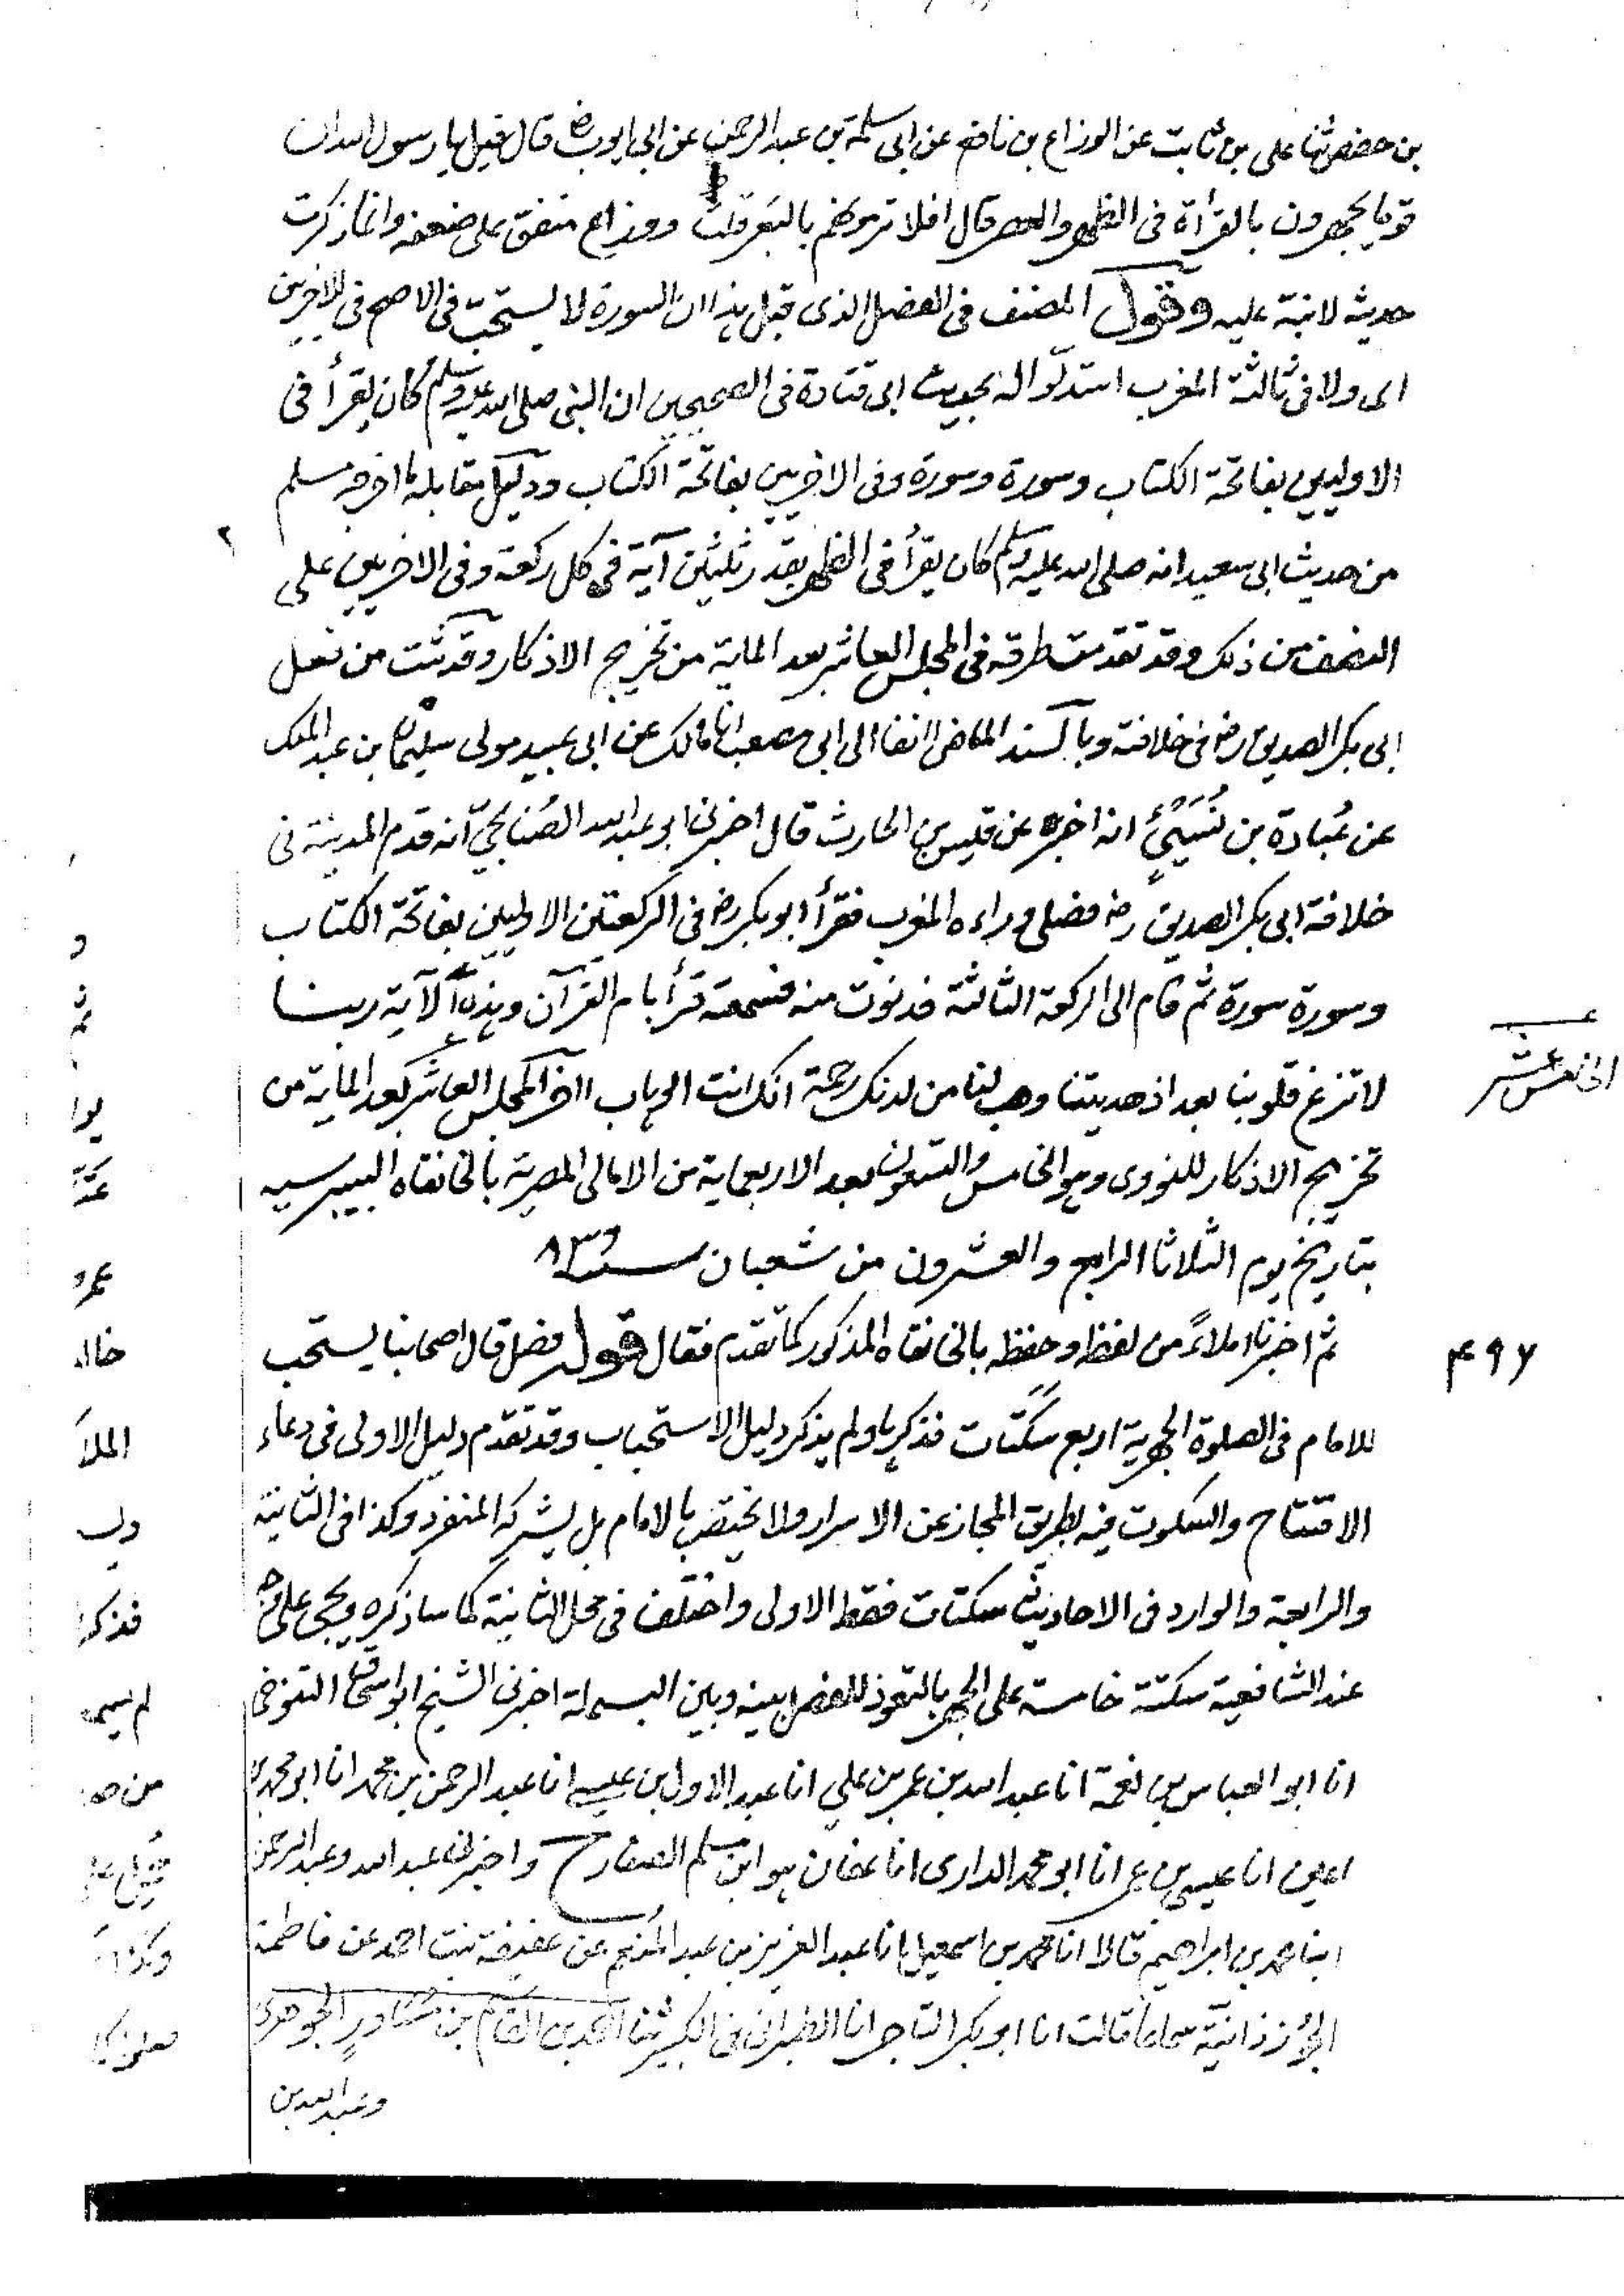 بن حفص ثنا على بن ثابت عن الوزاع بن نافع عن ابى سلمة بن عبد الرحمن عن ابى ايوب رض قال قيل يا رسول الله ان
قوما يجهرون بالقرأة فى الظهر والعصر قال افلا ترمونهم بالبعر قلت ووزاع متفق على ضعفه وانما ذكرت
حديثه لانبه عليه وقول المصنف فى الفصل الذى قبل هذا ان السورة لا يستحب فى الاصح فى الاخريين
اى ولا فى ثالثة المغرب استدلوا له بحديث ابى قتادة فى الصحيحين ان النبى صلى الله عليه وسلم كان يقرأ فى
الاوليين بفاتحة الكتاب وسورة وسورة وفى الاخريين بفاتحة الكتاب ودليل مقابله ما اخرجه مسلم
من حديث ابى سعيد انه صلى الله عليه وسلم كان يقرأ فى الظهر بقدر ثلثين آية فى كل ركعة وفى الاخريين على
النصف من ذلك وقد تقدمت طرقه فى المجلس العاشر بعد الماية من تخريج الاذكار وقد ثبت من فعل
ابى بكر الصديق رض فى خلافته وبالسند الماضى انفا الى ابى مصعب انا مالك عن ابى عبيد مولى سليمان بن عبد الملك
عن عُبادة بن نُسَيّ انه اخبره عن قيس بن الحارث قال اخبرنى ابو عبد الله الصُنابحيّ انه قدم المدينة فى
خلافة ابى بكر الصديق رض فصلى وراءه المغرب فقرأ ابو بكر رض فى الركعتين الاوليين بفاتحة الكتاب
وسورة سورة ثم قام الى الركعة الثالثة فدنوت منه فسمعته قرأ بام القرآن وبهذه الآية ربنا
لا تزغ قلوبنا بعد اذ هديتنا وهب لنا من لدنك رحمة انك انت الوهاب اخر المجلس العاشر بعد الماية من
تخريج الاذكار للنووى وهو الخامس والتسعون بعد الاربعماية من الامالى المصرية بالخانقاه البيبرسيه
بتاريخ يوم الثلاثا الرابع والعشرون من شعبان سنة
ثم اخبرنا املاءً من لفظه وحفظه بالخانقاه المذكور كما تقدم فقال قوله فصل قال اصحابنا يستحب
۴۹۶
للامام فى الصلوة الجهرية اربع سكتات فذكرها ولم يذكر دليل الاستحباب وقد تقدم دليل الاولى فى دعاء
الافتتاح والسكوت فيه بطريق المجاز عن الاسرار ولا يختص بالامام بل يشركه المنفرد وكذا فى الثانية
والرابعة والوارد فى الاحاديث سكتات فقط الاولى واختلف فى محل الثانية كما ساذكره ويجئ على وجه
عند الشافعية سكتة خامسة على الجهر بالتعوذ للفصل بينه وبين البسملة اخبرنى الشيخ ابو اسحاق التنوخى
انا ابو العباس بن نعمة انا عبد الله بن عمر بن علي انا عبد الاول بن عيسى انا عبد الرحمن بن محمد انا ابو محمد بن
اعين انا عيسى بن عمر انا ابو محمد الدارى انا عفان هو ابن مسلم الصفار ح واخبرنى عبد الله وعبد الرحمن
ابنا محمد بن ابراهيم قالا انا محمد بن اسمعيل انا عبد العزيز بن عبد المنعم عن عفيفة بنت احمد عن فاطمة
الجُوزذانية سماعا قالت انا ابو بكر التاجر انا الطبرانى فى الكبير ثنا احمد بن القاسم بن مساور الجوهرى
وعبد الله بن
ثم
خالد
الملأ